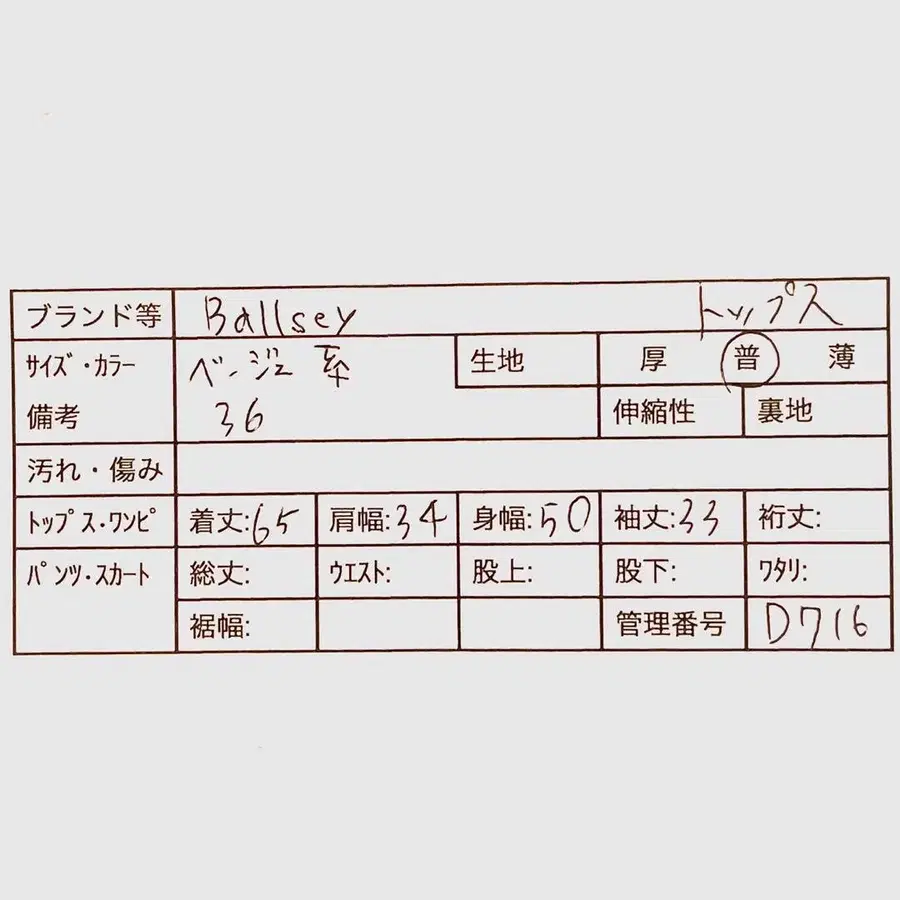 ブランド等 Ballsey トップス
ｻｲｽﾞ・ｶﾗｰ ベージュ系 生地 厚 普 薄
備考 36 伸縮性 裏地
汚れ・傷み
ﾄｯﾌﾟｽ・ﾜﾝﾋﾟ 着丈:65 肩幅:34 身幅:50 袖丈:33 裄丈:
ﾊﾟﾝﾂ・ｽｶｰﾄ 総丈: ｳｴｽﾄ: 股上: 股下: ﾜﾀﾘ:
裾幅: 管理番号 D716